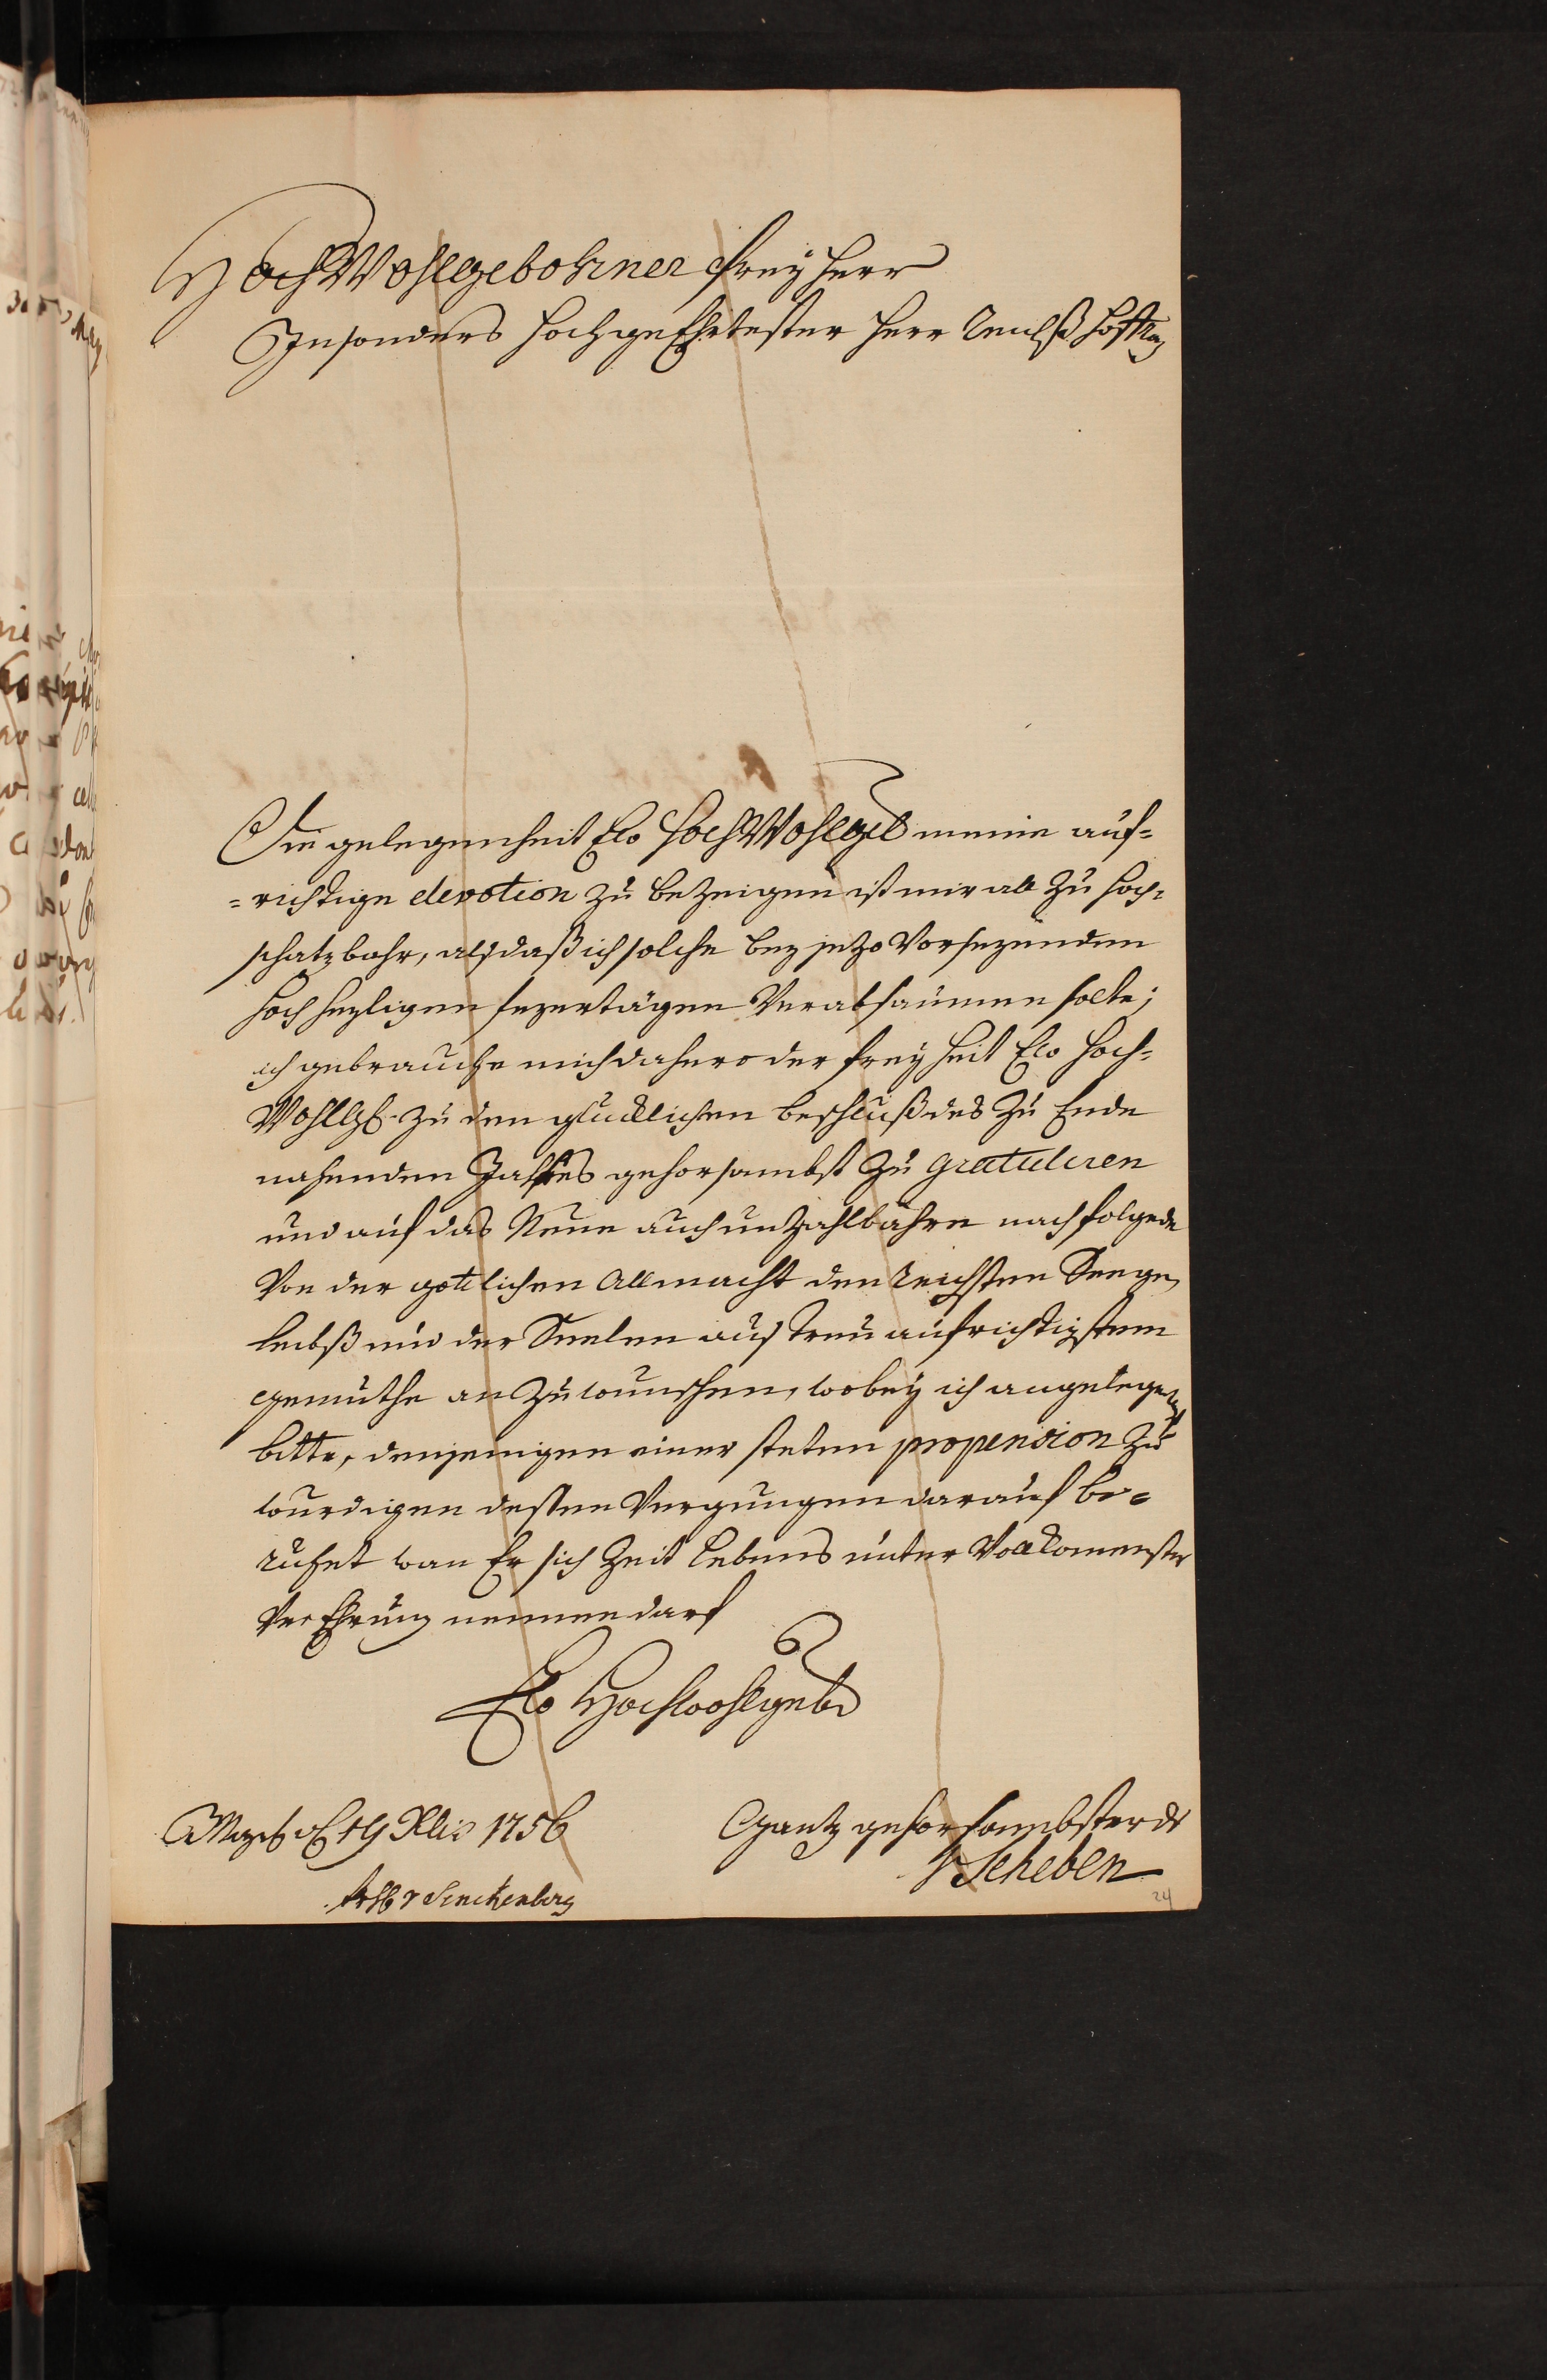 HochWohlgebohrner FreyHerr
Insonders HochgeEhrtester Herr Reichß Hoffrath
Die gelegenheit Ew HochWohlgeb meine auf=
=richtige devotion zu bezeigen ist mir all zu hoch=
schatzbahr, alß daß ich solche bey jetzo Vorseyenden
Hochheyligen feyertägen Verabsaumen solte;
ich gebrauche mich dahero der freyheit Ew Hoch=
Wohllgb. zu den glucklichen beschluß des zu Ende
nahenden Jahres gehorsambst zu gratuliren
und auf das Neue auch unzahlbahre nachfolgede
Von der gottlichen Allmacht den reichsten Seegen
leibß und der Seelen auß treu aufrichtigstem
gemuthe anzuwunschen, wobey ich angelegenst
bitte, denjenigen einer steten propension zu
wurdigen dessen Vergnugen darauf be=
ruhet wan Er sich Zeit lebens unter Vollkomenster
VerEhrung nennen darf
Ew Hochwohlgeb
19 Xbris 1756
Gantz gehorsambster dr
v Scheben
v Senckenberg
24